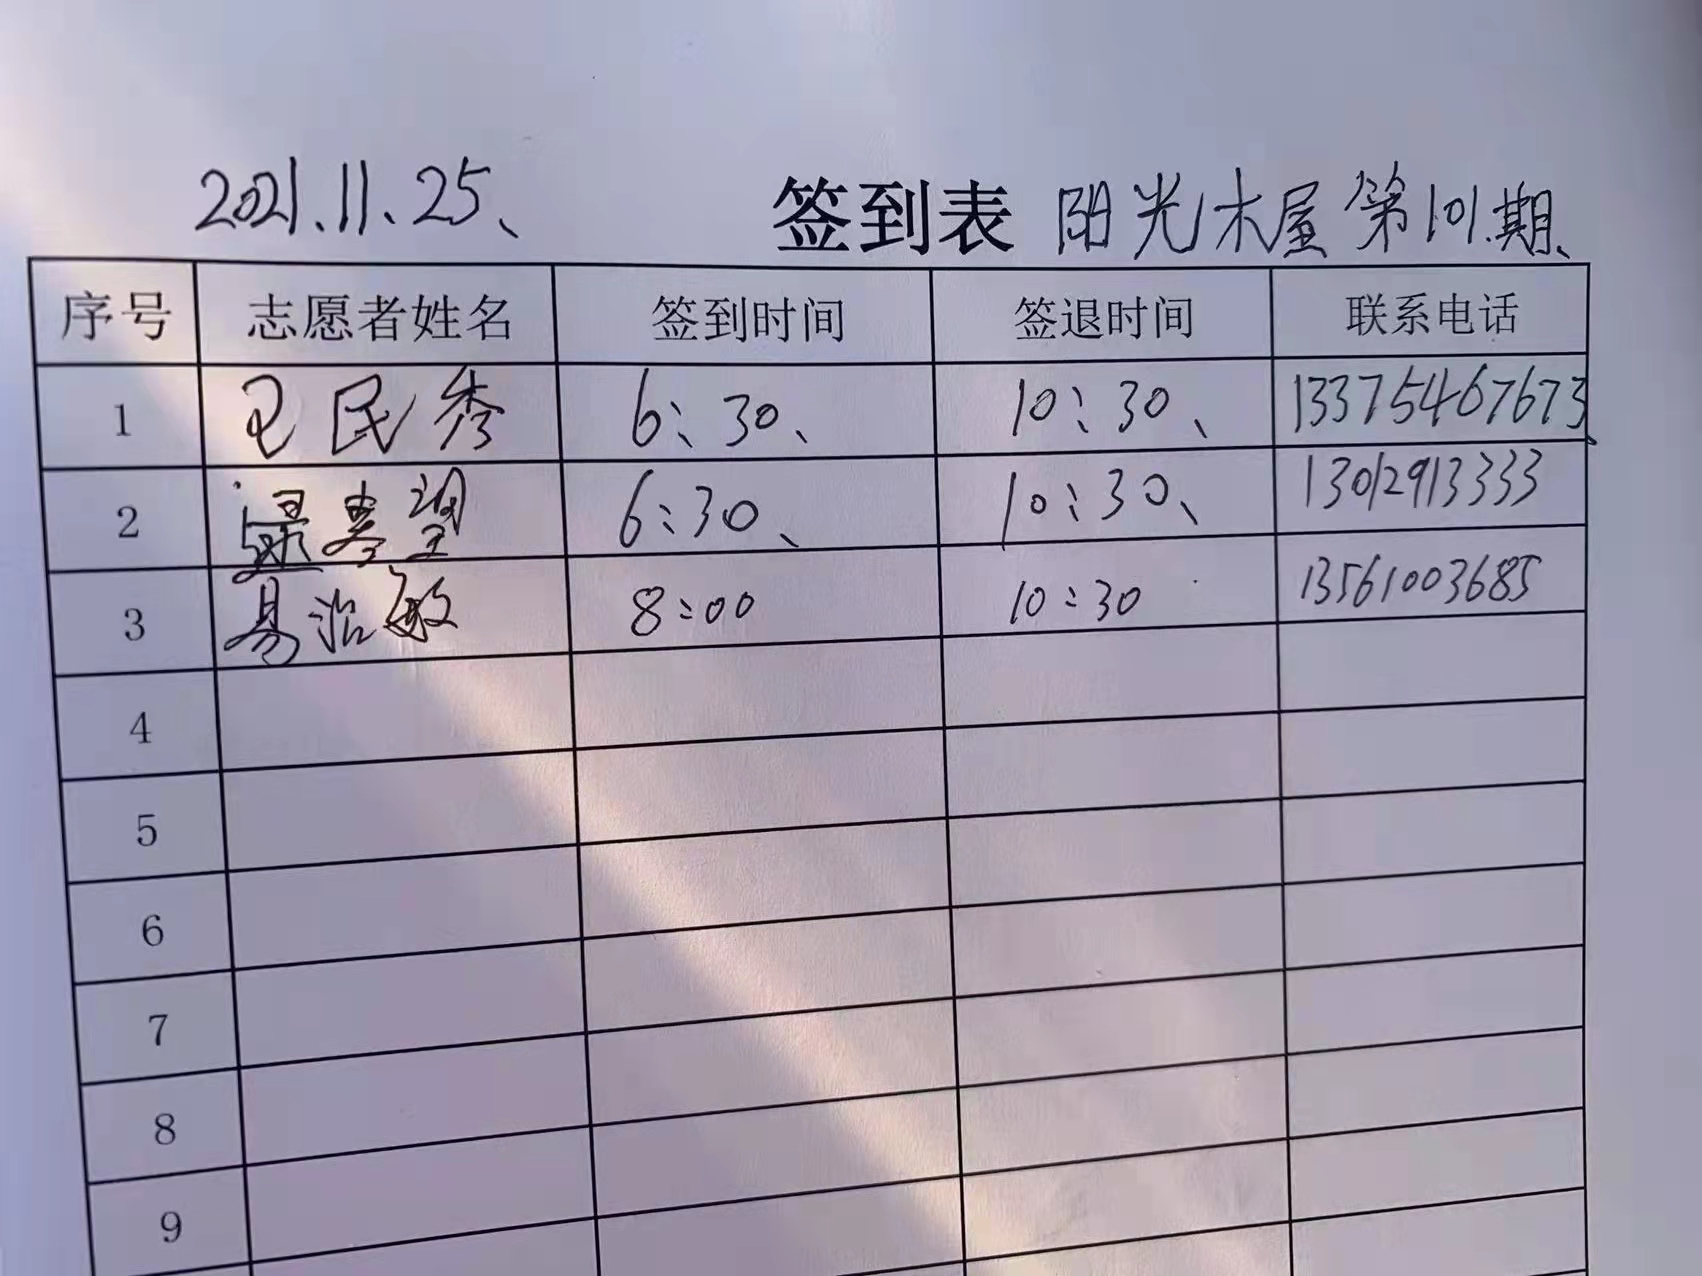 2021.11.25、 签到表 阳光木屋第101期、
序号 志愿者姓名 签到时间 签退时间 联系电话
1 民秀 6:30、 10:30、 13375467673、
2 6:30、 10:30、 13012913333
3 易治敏 8:00 10:30 13561003685
4
5
6
7
8
9